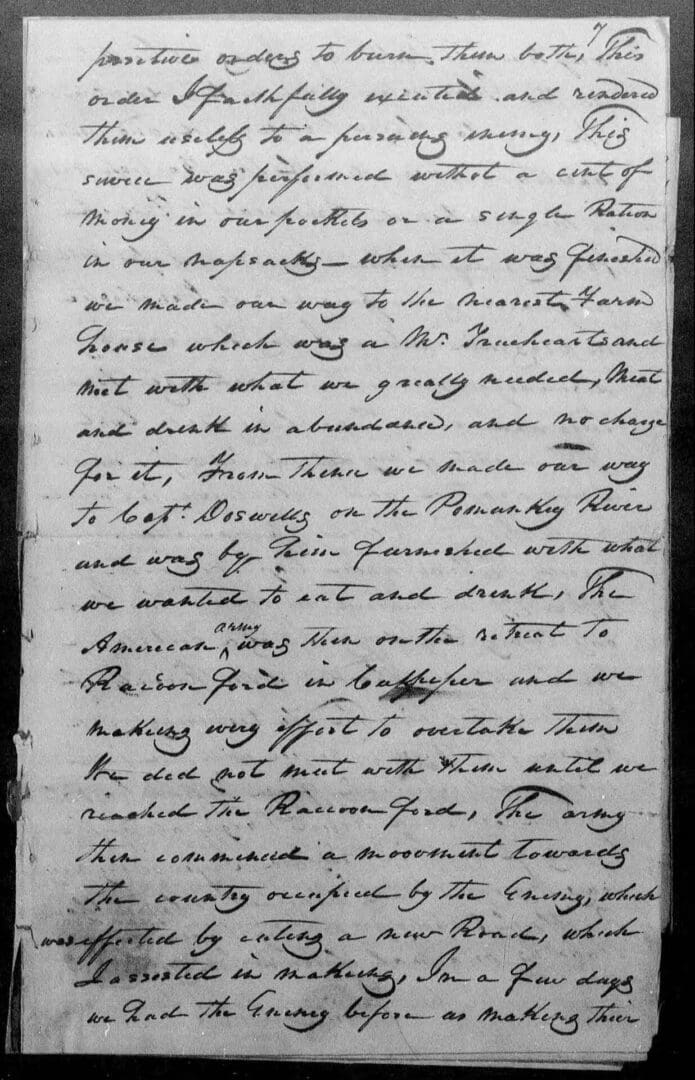 7
positive orders to burn them both, This
order I faithfully excuted and rendered
them useless to a persuing enemy, This
sirvice was performed without a cent of
money in our pockets or a single Ration
in our napsacks – when it was finished
we made our way to the nearest Farm
house which was a Mr. Truehearts and
met with what we greatly needed, Meat
and drink in abundance, and no charge
for it, From thence we made our way
to Capt. Doswells on the Pomunkey River
and was by him furnished with what
we wanted to eat and drink, The
American army was then on the retreat to
Racoon ford in Culpeper and we
making every effort to overtake them
We did not meet with them until we
reached the Raccoon ford, The army
then commencd a moovment towards
the country occupied by the Enemy, which
was effected by cuting a new Road, which
I assisted in makeing, In a few days
we had the Enemy before us making thier